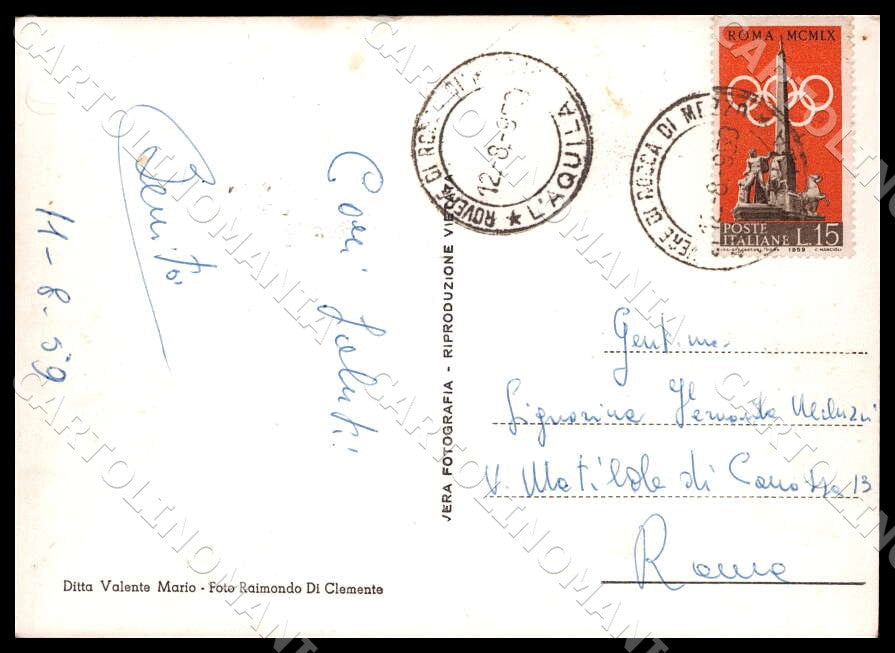 ROMA MCMLX
POSTE
ITALIANE L.15
1959
ROVERE DI ROCCA DI
12-8-959
★ L'AQUILA
ROCCA DI ME
Cari Saluti
11-8-59
VERA FOTOGRAFIA - RIPRODUZIONE
Gent.ma
Signorina
V. Matilde di Canossa 13
Roma
Ditta Valente Mario - Foto Raimondo Di Clemente
CARTOLINOMANIA